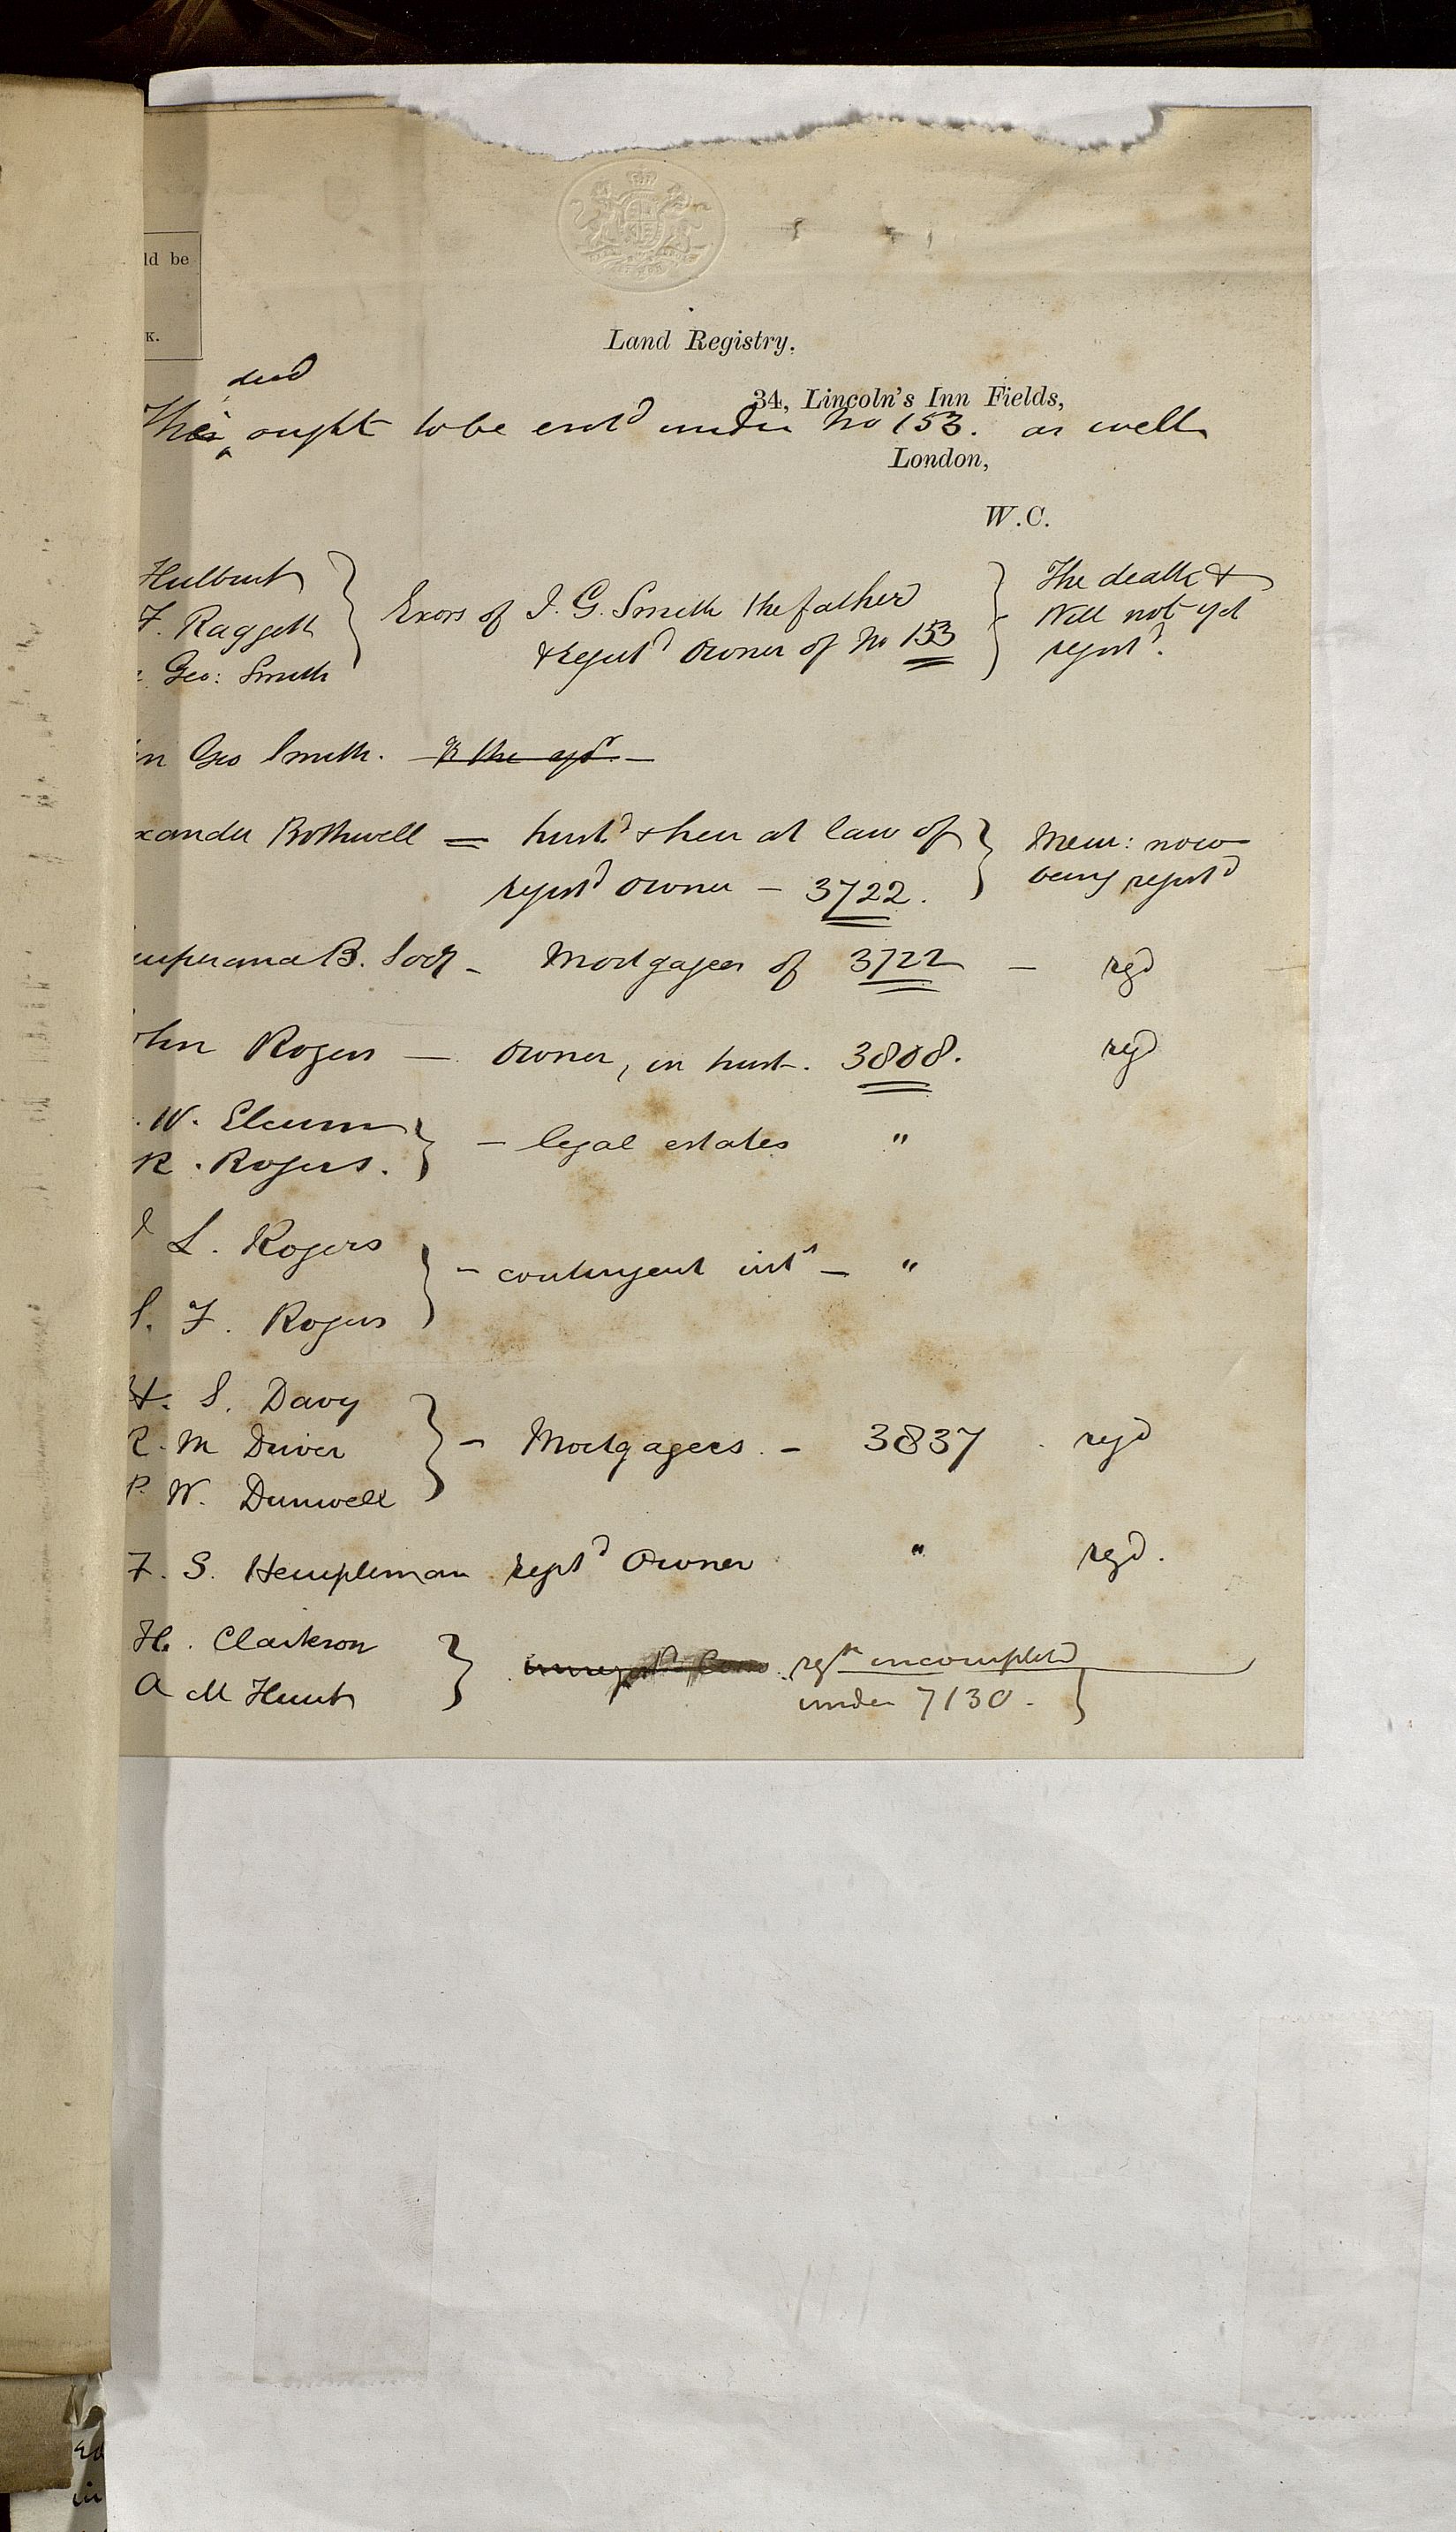 ld be
k.
Land Registry.
34, Lincoln's Inn Fields,
deed
This ought to be ent'd under No 153. as well
London,
W.C.
Hulbert
F. Raggett
Geo: Smith
Exors of J. G. Smith the father
& regist'd Owner of No 153
The death &
Will not yet
regist'd.
n Geo Smith.
xander Bothwell = husb'd & heir at law of
regist'd owner – 3722.
Mem: now
being regist'd
emperance B. Socy – Mortgagees of 3722 – regd
ohn Rogers — Owner, in trust. 3808. regd
W. Elcum
R. Rogers.
– legal estates "
L. Rogers
S. F. Rogers
– contingent int's – "
H. S. Davy
R. M Driver
P. W. Dunwell
– Mortgagees. – 3837 regd
F. S. Hempleman regist'd Owner " regd.
H. Clarkson
A M Hunt
regn incompleted
under 7130.